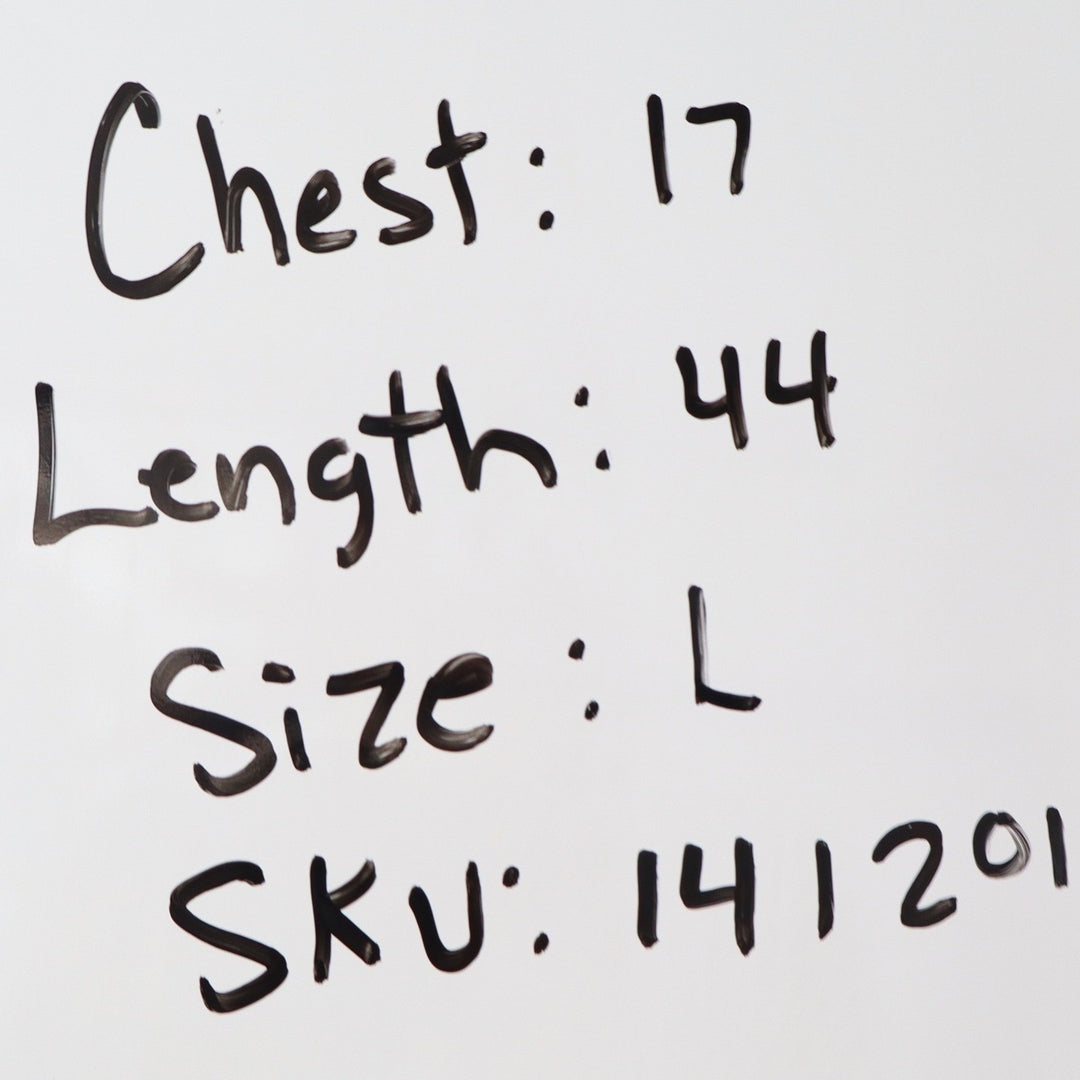 Chest: 17
Length: 44
Size: L
SKU: 141201